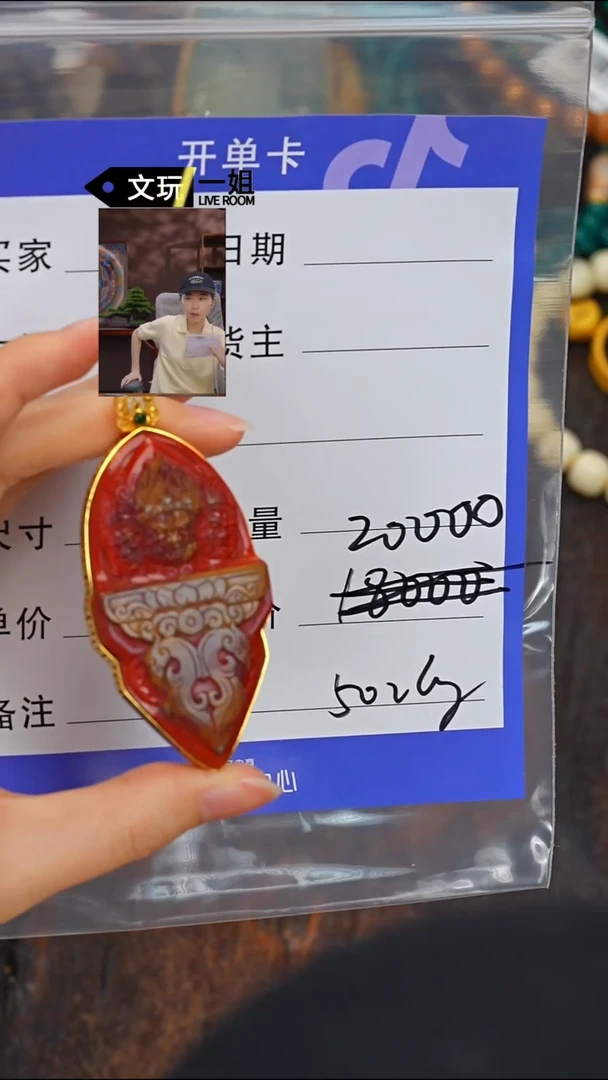 开单卡
文玩一姐
LIVE ROOM
买家
日期
货主
尺寸
量
20000
单价
价
18000
备注
心